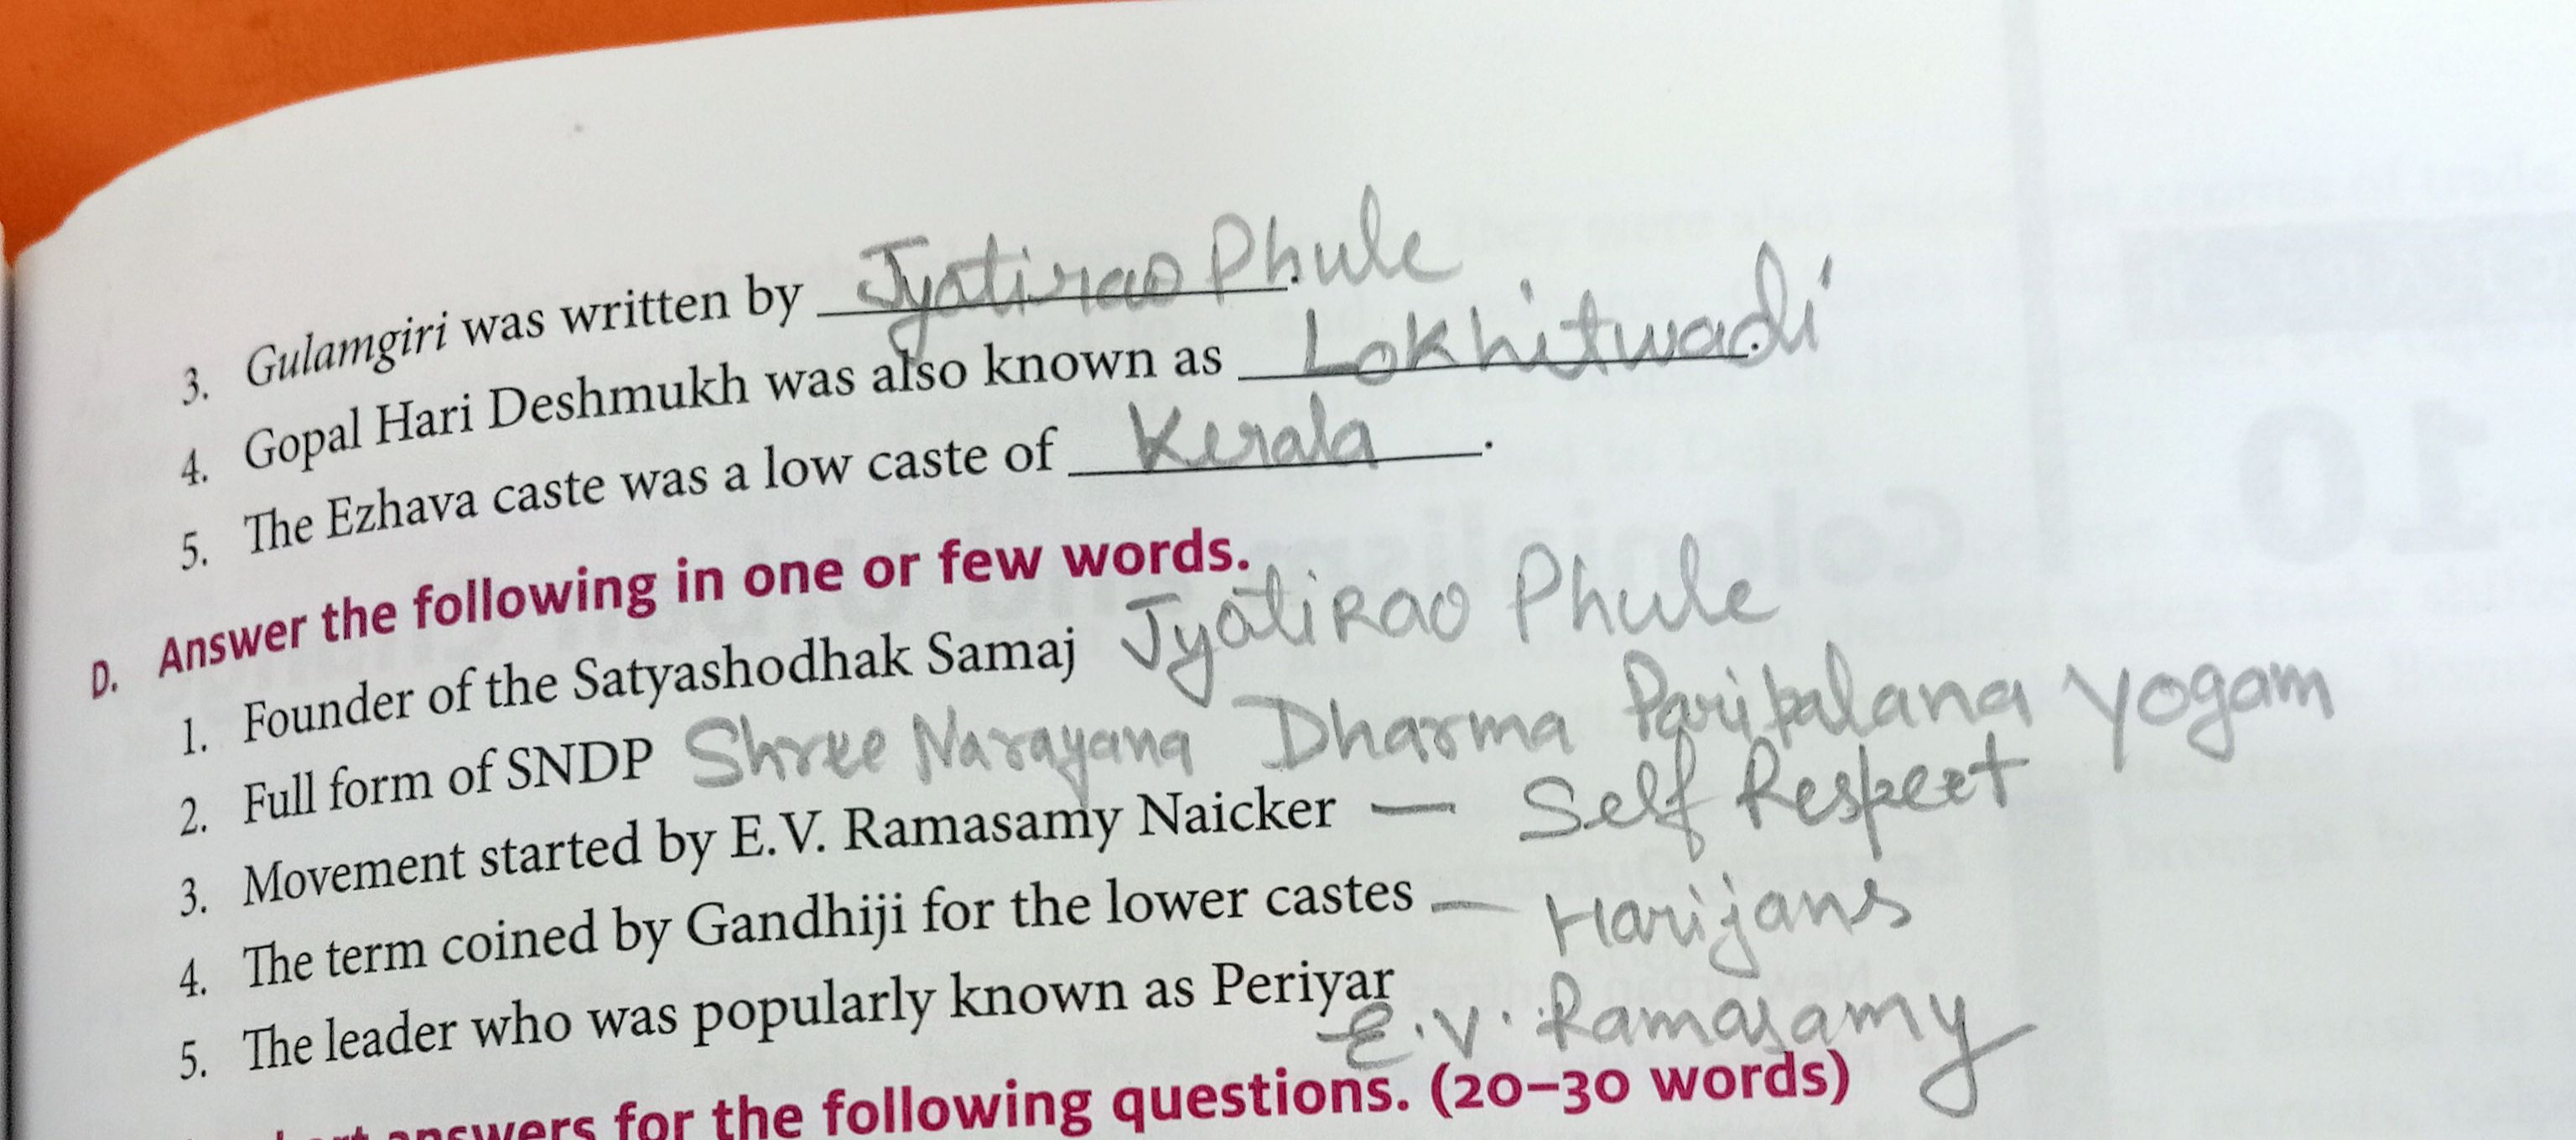 3. Gulamgiri was written by Jyotirao Phule.
4. Gopal Hari Deshmukh was also known as Lokhitwadi.
5. The Ezhava caste was a low caste of Kerala.
D. Answer the following in one or few words.
1. Founder of the Satyashodhak Samaj Jyotirao Phule
2. Full form of SNDP Shree Narayana Dharma Paripalana Yogam
3. Movement started by E.V. Ramasamy Naicker — Self Respect
4. The term coined by Gandhiji for the lower castes — Harijans
5. The leader who was popularly known as Periyar E.V. Ramasamy
answers for the following questions. (20–30 words)